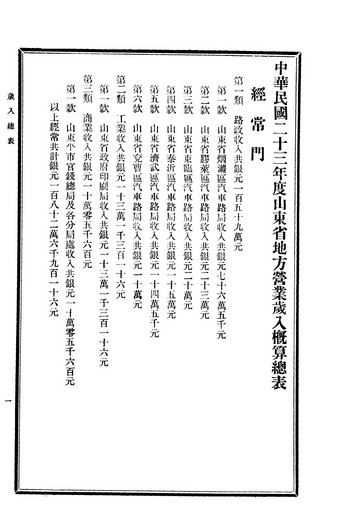 中華民國二十三年度山東省地方營業歲入概算總表
經常門
第一類　路政收入共銀元一百五十九萬元
第一款　山東省烟濰區汽車路局收入共銀元七十六萬五千元
第二款　山東省膠萊區汽車路局收入共銀元二十三萬元
第三款　山東省東臨區汽車路局收入共銀元二十萬元
第四款　山東省泰沂區汽車路局收入共銀元一十五萬元
第五款　山東省濟武區汽車路局收入共銀元一十四萬五千元
第六款　山東省兗曹區汽車路局收入共銀元一十萬元
第二類　工業收入共銀元一十三萬一千三百一十六元
第一款　山東省政府印刷局收入共銀元一十三萬一千三百一十六元
第三類　商業收入共銀元一十萬零五千六百元
第一款　山東平市官錢總局及各分局處收入共銀元一十萬零五千六百元
以上經常共計銀元一百八十二萬六千九百一十六元
歲入總表
一